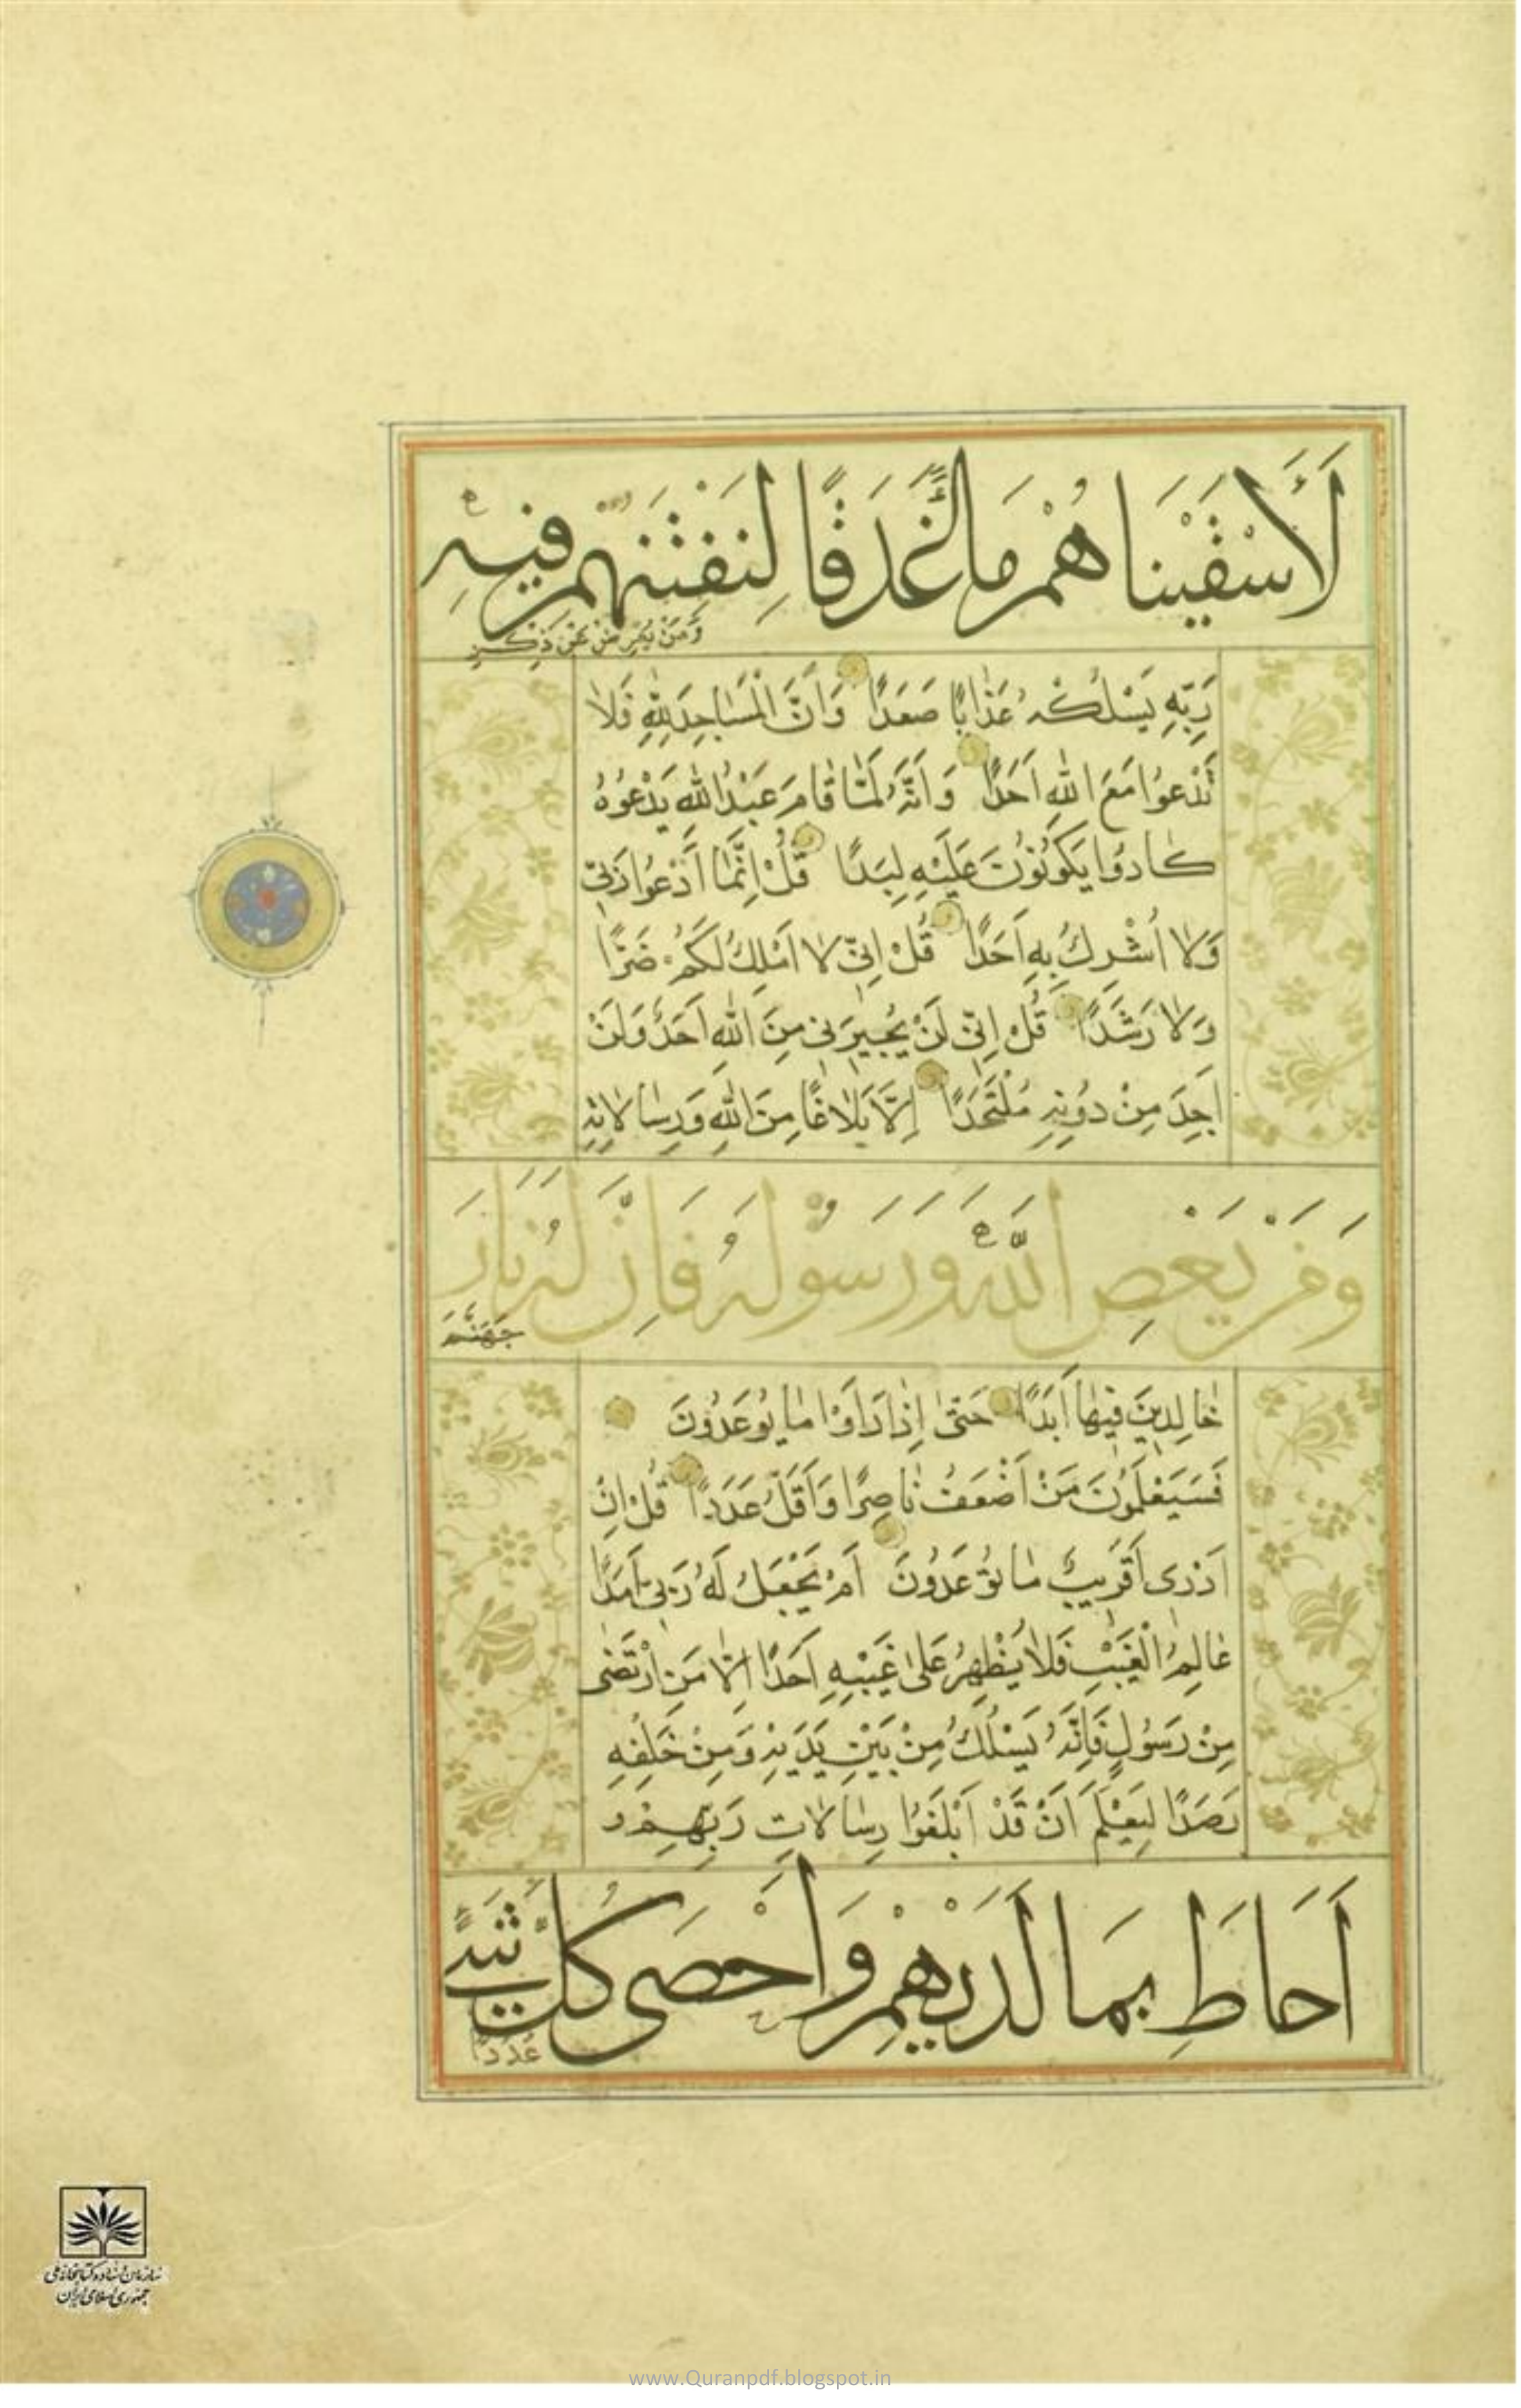 لَأَسْقَيْنَاهُمْ مَاءً غَدَقًا لِنَفْتِنَهُمْ فِيهِ
وَمَنْ يُعْرِضْ عَنْ ذِكْرِ
رَبِّهِ يَسْلُكْهُ عَذَابًا صَعَدًا وَاَنَّ الْمَسَاجِدَ لِلّٰهِ فَلَا
تَدْعُوا مَعَ اللّٰهِ اَحَدًا وَاَنَّهُ لَمَّا قَامَ عَبْدُ اللّٰهِ يَدْعُوهُ
كَادُوا يَكُونُونَ عَلَيْهِ لِبَدًا قُلْ اِنَّمَا اَدْعُوا رَبِّي
وَلَا اُشْرِكُ بِهِ اَحَدًا قُلْ اِنِّي لَا اَمْلِكُ لَكُمْ ضَرًّا
وَلَا رَشَدًا قُلْ اِنِّي لَنْ يُجِيرَنِي مِنَ اللّٰهِ اَحَدٌ وَلَنْ
اَجِدَ مِنْ دُونِهِ مُلْتَحَدًا اِلَّا بَلَاغًا مِنَ اللّٰهِ وَرِسَالَاتِهِ
وَمَنْ يَعْصِ اللّٰهَ وَرَسُولَهُ فَاِنَّ لَهُ نَارَ
جَهَنَّمَ
خَالِدِينَ فِيهَا اَبَدًا حَتّٰى اِذَا رَاَوْا مَا يُوعَدُونَ
فَسَيَعْلَمُونَ مَنْ اَضْعَفُ نَاصِرًا وَاَقَلُّ عَدَدًا قُلْ اِنْ
اَدْرِى اَقَرِيبٌ مَا تُوعَدُونَ اَمْ يَجْعَلُ لَهُ رَبِّي اَمَدًا
عَالِمُ الْغَيْبِ فَلَا يُظْهِرُ عَلٰى غَيْبِهِ اَحَدًا اِلَّا مَنِ ارْتَضٰى
مِنْ رَسُولٍ فَاِنَّهُ يَسْلُكُ مِنْ بَيْنِ يَدَيْهِ وَمِنْ خَلْفِهِ
رَصَدًا لِيَعْلَمَ اَنْ قَدْ اَبْلَغُوا رِسَالَاتِ رَبِّهِمْ وَ
اَحَاطَ بِمَا لَدَيْهِمْ وَاَحْصٰى كُلَّ شَيْءٍ
عَدَدًا
سازمان اسناد و کتابخانه ملی
جمهوری اسلامی ایران
www.Quranpdf.blogspot.in